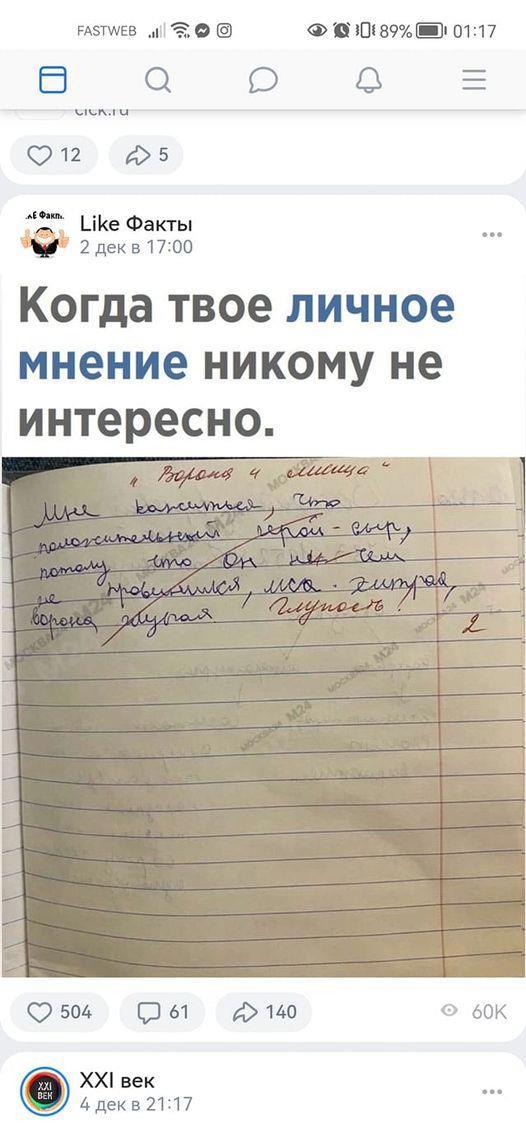 FASTWEB 89% 01:17
click.ru
12 5
.ᴧE Факп.
Like Факты
2 дек в 17:00
Когда твое личное
мнение никому не
интересно.
"Ворона и лисица"
Мне кажиться, что
положительный герой - сыр,
потому что он не чем
не провинился, лиса - хитрая,
ворона глупая Глупость!
2
МОСКВА М24
МОСКВА М24
МОСКВА М24
МОСКВА М24
504 61 140 60K
XXI
ВЕК
XXI век
4 дек в 21:17